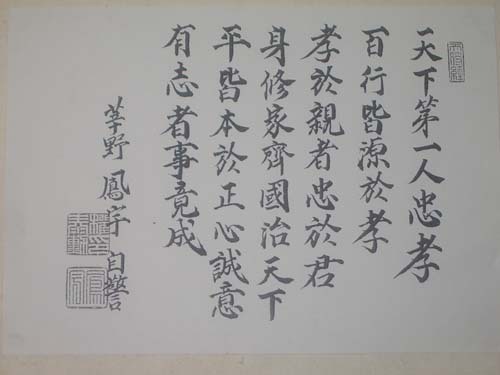 天下第一人忠孝
百行皆源於孝
孝於親者忠於君
身修家齊國治天下
平皆本於正心誠意
有志者事竟成
莘野 鳳宇 自警